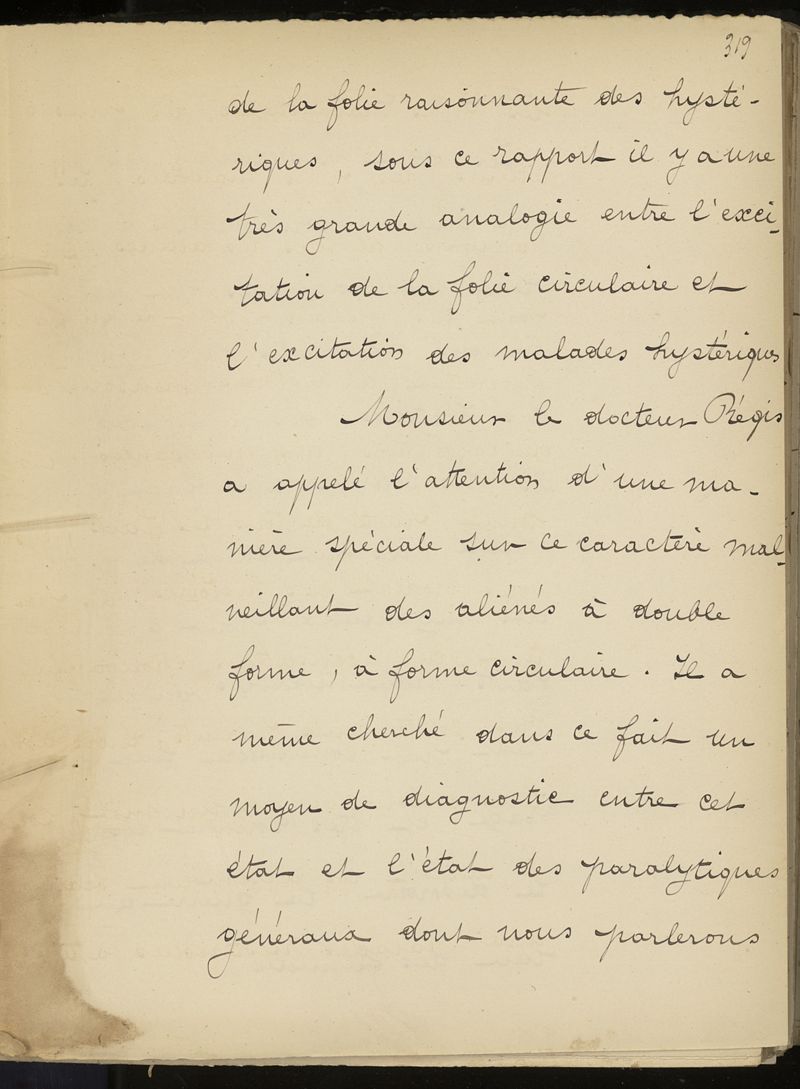 319
de la folie raisonnante des hysté-
riques, sous ce rapport il y a une
très grande analogie entre l'exci-
tation de la folie circulaire et
l'excitation des malades hystériques
Monsieur le docteur Régis
a appelé l'attention d'une ma-
nière spéciale sur ce caractère mal-
veillant des aliénés à double
forme, à forme circulaire. Il a
même cherché dans ce fait un
moyen de diagnostic entre cet
état et l'état des paralytiques
généraux dont nous parlerons